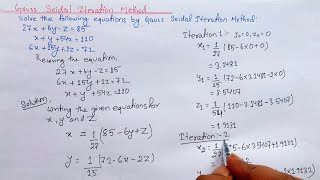 Gauss Seidal Iteration Method:
Solve the following equations by Gauss Seidal Iteration Method:
27x+6y-z=85
x+y+54z=110
6x+15y+2z=72
Reusing the equation
27x+6y-z=85
6x+15y+2z=72
x+y+54z=110
Solution:
Writing the given equations for
x, y and z
x = 1/27 (85-6y+z)
y = 1/15 (72-6x-2z)
Iteration 1: y₀=0, z₀=0
x₁ = 1/27 (85-6x0+0)
= 3.1481
y₁ = 1/15 (72-6x3.1481-2x0)
= 3.5407
z₁ = 1/54 (110-3.1481-3.5407)
= 1.9131
Iteration:-2
x₂ = 1/27 (85-6x3.5407+1.9131)